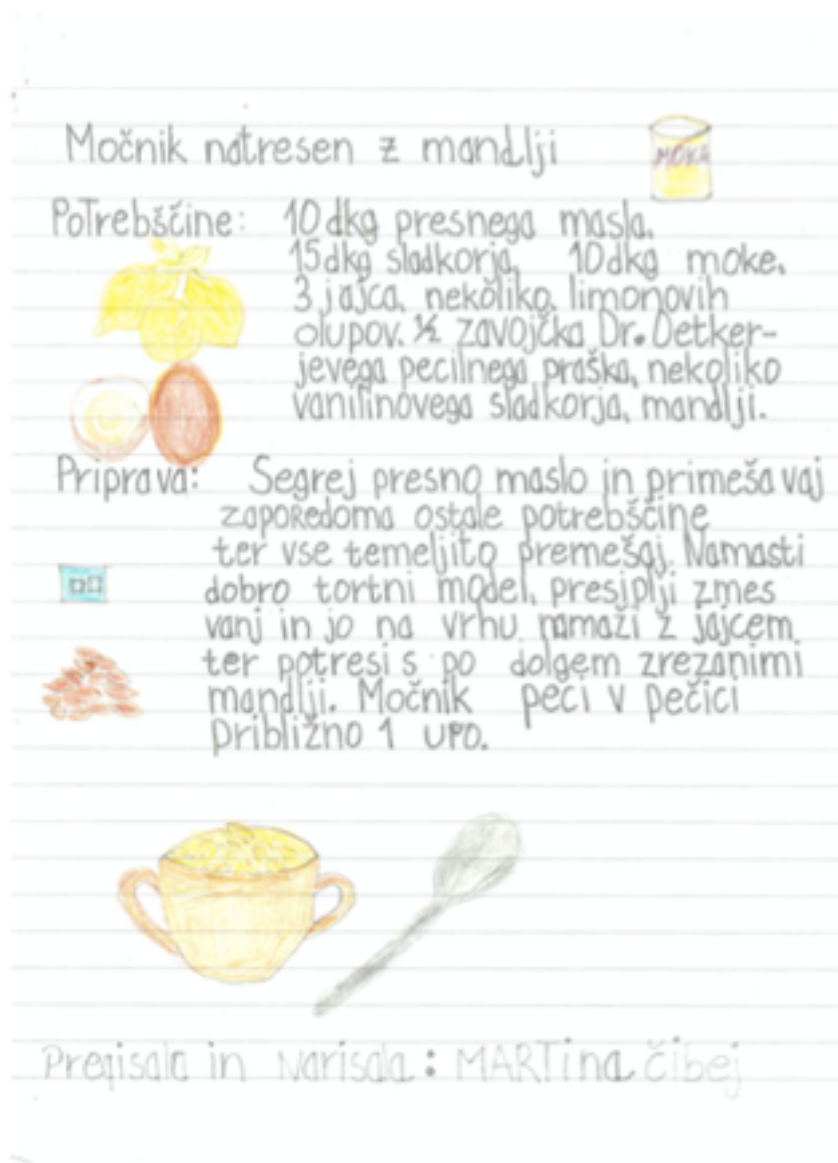 Močnik natresen z mandlji
MOKA
Potrebščine: 10 dkg presnega masla,
15dkg sladkorja, 10dkg moke,
3 jajca, nekoliko limonovih
olupov. ½ zavojčka Dr. Oetker-
jevega pecilnega praška, nekoliko
vanilinovega sladkorja, mandlji.
Priprava: Segrej presno maslo in primešavaj
zaporedoma ostale potrebščine
ter vse temeljito premešaj. Namasti
dobro tortni model, presiplji zmes
vanj in jo na vrhu namaži z jajcem
ter potresi s po dolgem zrezanimi
mandlji. Močnik peči v pečici
približno 1 uro.
Prepisala in Narisala: MARTina čibej